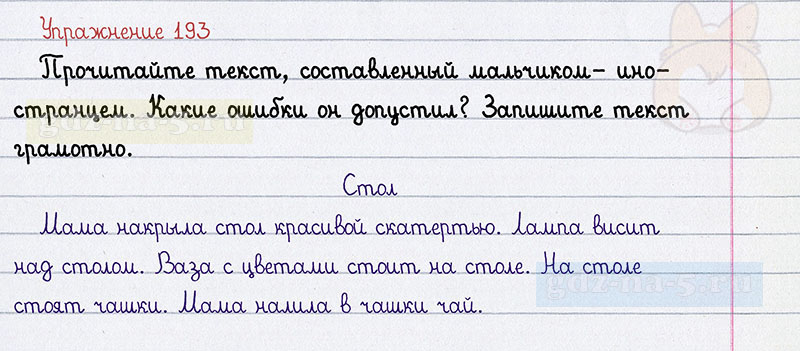 Упражнение 193
Прочитайте текст, составленный мальчиком- ино-
странцем. Какие ошибки он допустил? Запишите текст
gdz-na-5.ru
грамотно.
Стол
Мама накрыла стол красивой скатертью. Лампа висит
над столом. Ваза с цветами стоит на столе. На столе
gdz-na-5.ru
стоят чашки. Мама налила в чашки чай.